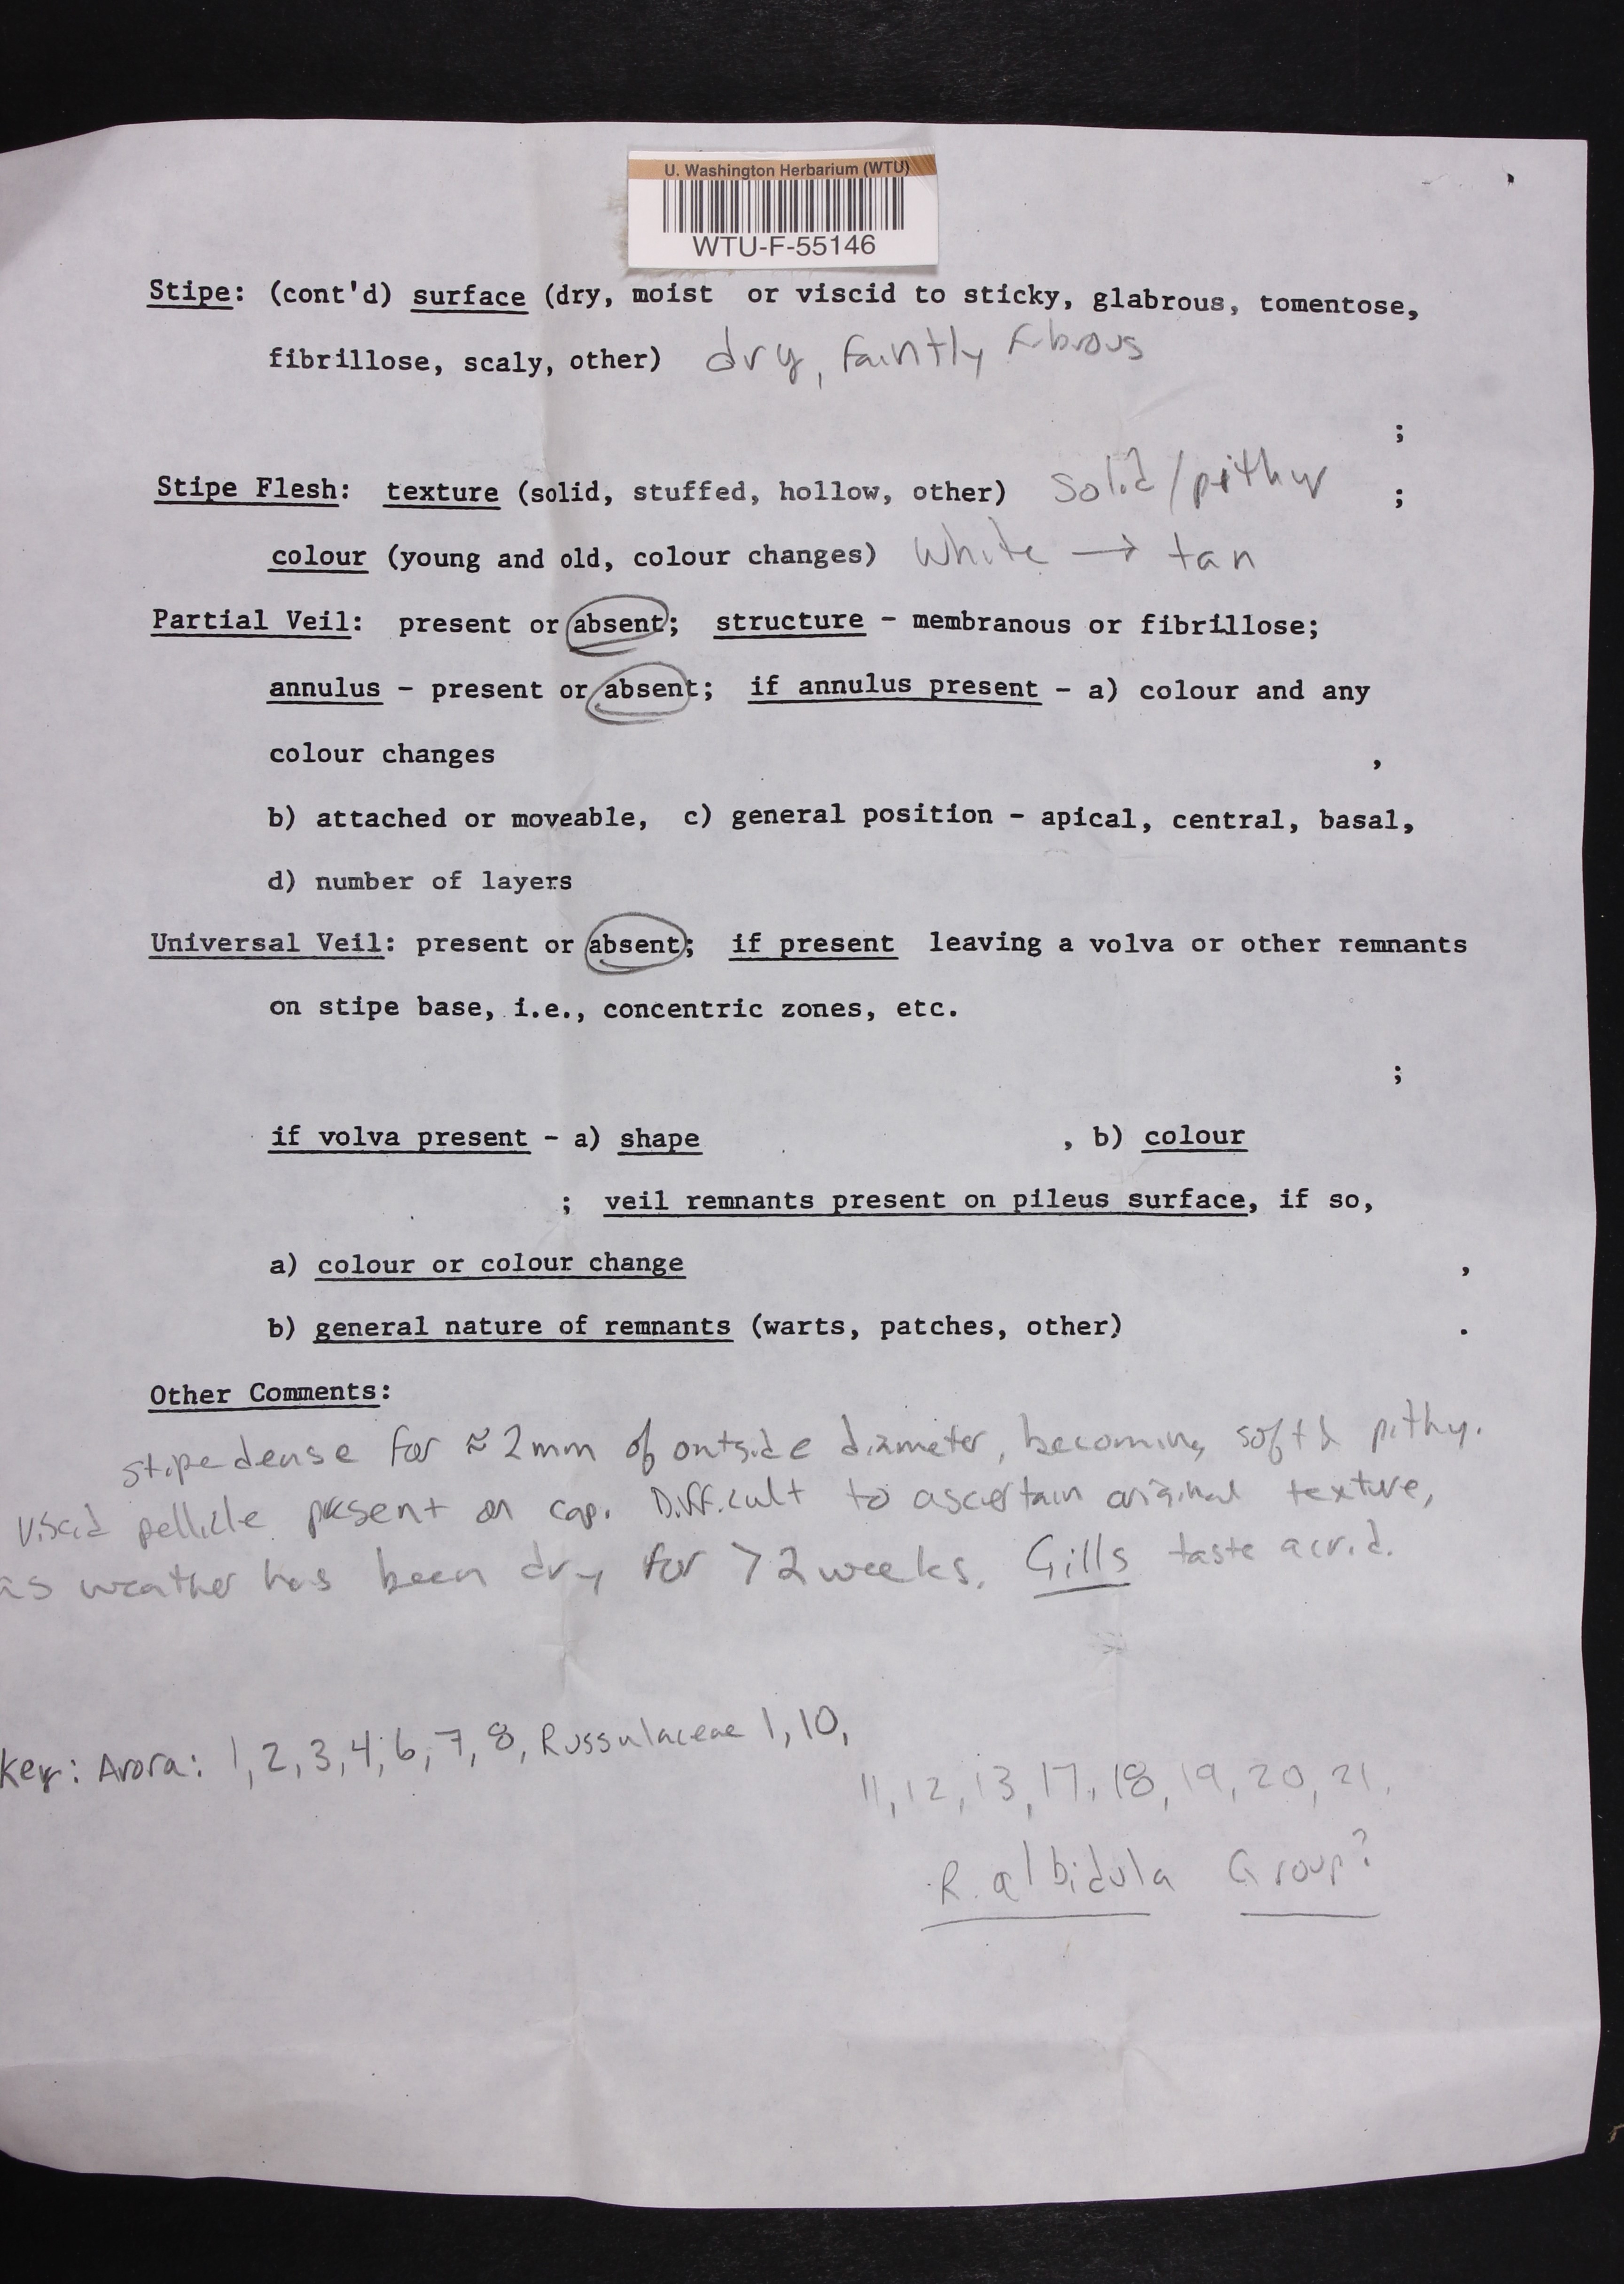 U. Washington Herbarium (WTU)
WTU-F-55146
Stipe: (cont'd) surface (dry, moist or viscid to sticky, glabrous, tomentose,
fibrillose, scaly, other) dry, faintly fibrous
;
Stipe Flesh: texture (solid, stuffed, hollow, other) solid/pithy ;
colour (young and old, colour changes) white → tan
Partial Veil: present or absent; structure - membranous or fibrillose;
annulus - present or absent; if annulus present - a) colour and any
colour changes ,
b) attached or moveable, c) general position - apical, central, basal,
d) number of layers
Universal Veil: present or absent; if present leaving a volva or other remnants
on stipe base, i.e., concentric zones, etc.
;
if volva present - a) shape , b) colour
; veil remnants present on pileus surface, if so,
a) colour or colour change ,
b) general nature of remnants (warts, patches, other) .
Other Comments:
stipe dense for ≈ 2mm of outside diameter, becoming soft & pithy.
Viscid pellicle present on cap. Difficult to ascertain original texture,
as weather has been dry for >2 weeks. Gills taste acrid.
Key: Arora: 1,2,3,4,6,7,8, Russulaceae 1,10,
11,12,13,17,18,19,20,21.
R. albidula Group?